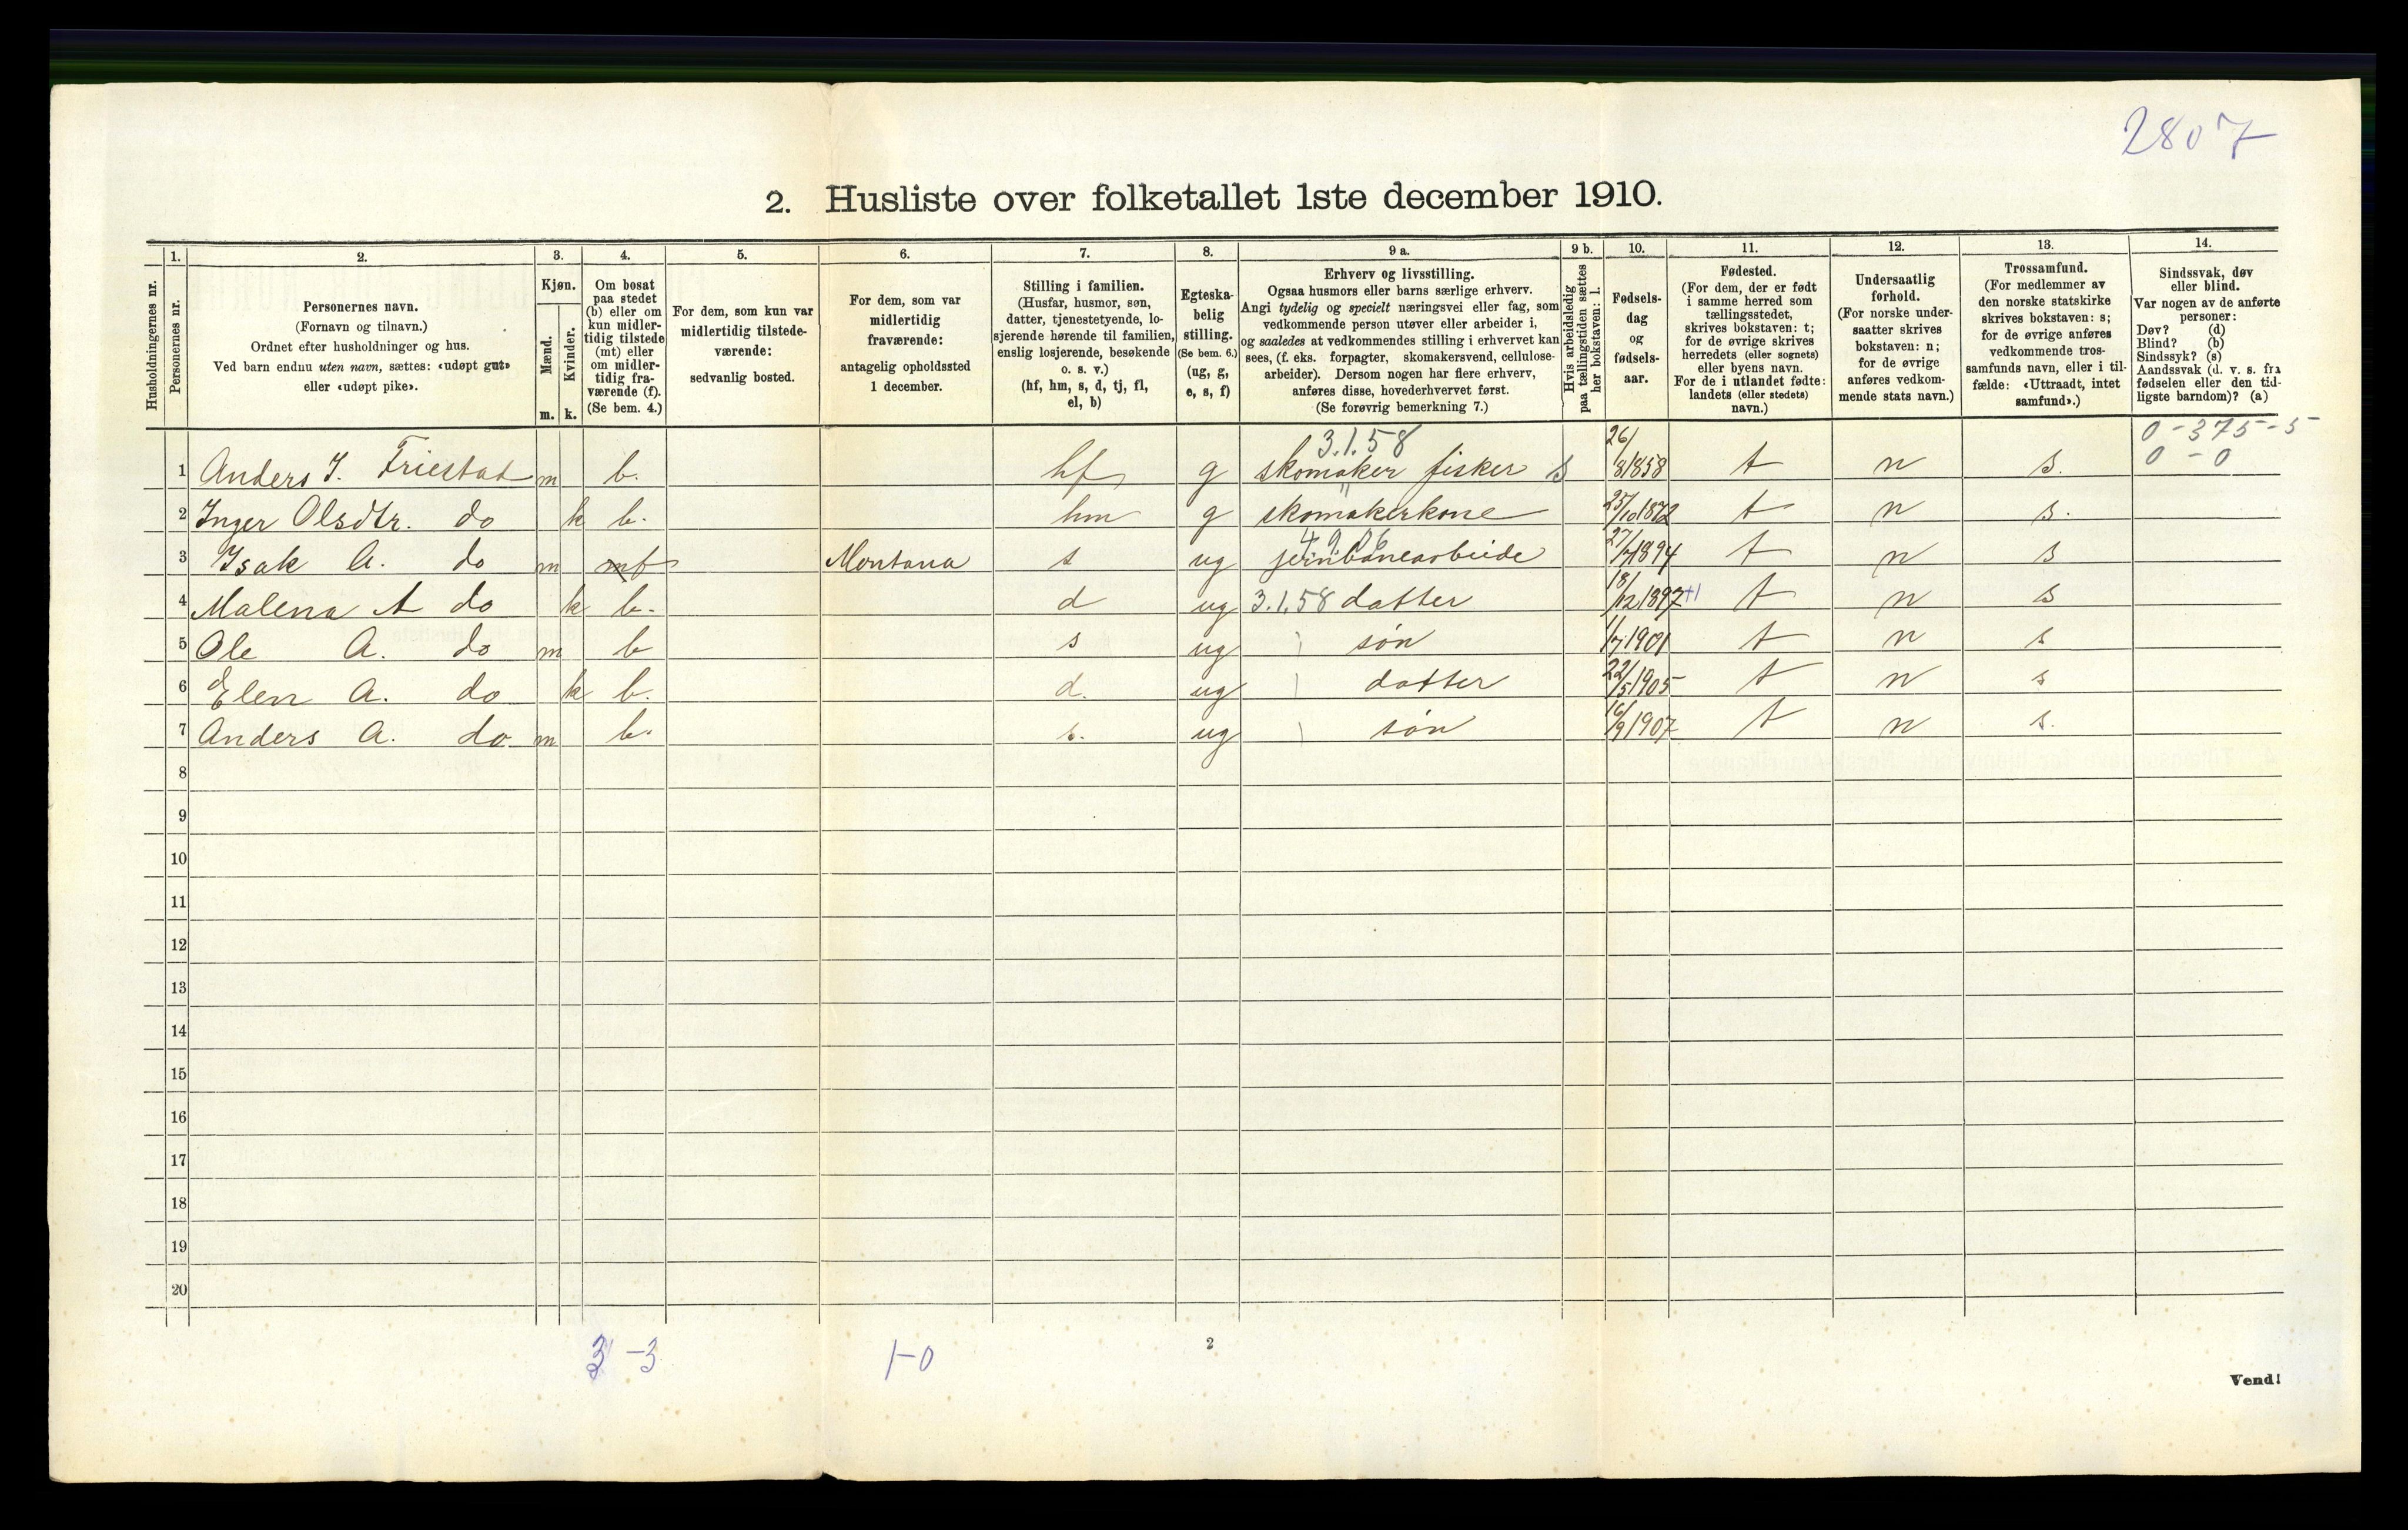 2807
2. Husliste over folketallet 1ste december 1910.
Husholdningernes nr.
1. Personernes nr.
2. Personernes navn. (Fornavn og tilnavn.) Ordnet efter husholdninger og hus. Ved barn endnu uten navn, sættes: «udøpt gut» eller «udøpt pike».
3. Kjøn. Mænd. m. Kvinder. k.
4. Om bosat paa stedet (b) eller om kun midlertidig tilstede (mt) eller om midlertidig fraværende (f). (Se bem. 4.)
5. For dem, som kun var midlertidig tilstedeværende: sedvanlig bosted.
6. For dem, som var midlertidig fraværende: antagelig opholdssted 1 december.
7. Stilling i familien. (Husfar, husmor, søn, datter, tjenestetyende, losjerende hørende til familien, enslig losjerende, besøkende o. s. v.) (hf, hm, s, d, tj, fl, el, b)
8. Egteskabelig stilling. (Se bem. 6.) (ug, g, e, s, f)
9 a. Erhverv og livsstilling. Ogsaa husmors eller barns særlige erhverv. Angi tydelig og specielt næringsvei eller fag, som vedkommende person utøver eller arbeider i, og saaledes at vedkommendes stilling i erhvervet kan sees, (f. eks. forpagter, skomakersvend, cellulosearbeider). Dersom nogen har flere erhverv, anføres disse, hovederhvervet først. (Se forøvrig bemerkning 7.)
9 b. Hvis arbeidsledig paa tællingstiden sættes her bokstaven: l.
10. Fødselsdag og fødselsaar.
11. Fødested. (For dem, der er født i samme herred som tællingsstedet, skrives bokstaven: t; for de øvrige skrives herredets (eller sognets) eller byens navn. For de i utlandet fødte: landets (eller stedets) navn.)
12. Undersaatlig forhold. (For norske undersaatter skrives bokstaven: n; for de øvrige anføres vedkommende stats navn.)
13. Trossamfund. (For medlemmer av den norske statskirke skrives bokstaven: s; for de øvrige anføres vedkommende trossamfunds navn, eller i tilfælde: «Uttraadt, intet samfund».)
14. Sindssvak, døv eller blind. Var nogen av de anførte personer: Døv? (d) Blind? (b) Sindssyk? (s) Aandssvak (d. v. s. fra fødselen eller den tidligste barndom)? (a)
3.1.58 0-375-5
1 Anders I. Friestad m b. hf g skomaker fisker s 26/8 1858 t n s. 0-0
2 Inger Olsdtr. do k b. hm g skomakerkone 25/10 1872 t n s.
3 Isak A. do m f Montana s ug jernbanearbeide 27/7 1894 t n s
4 Malena A do k b. d ug 3.1.58 datter 18/12 1897 +1 t n s
5 Ole A. do m b s ug søn 1/7 1901 t n s
6 Elen A. do k b. d. ug datter 22/5 1905 t n s
7 Anders A. do m b. s. ug søn 16/9 1907 t n s.
8
9
10
11
12
13
14
15
16
17
18
19
20
3-3 1-0
2
Vend!